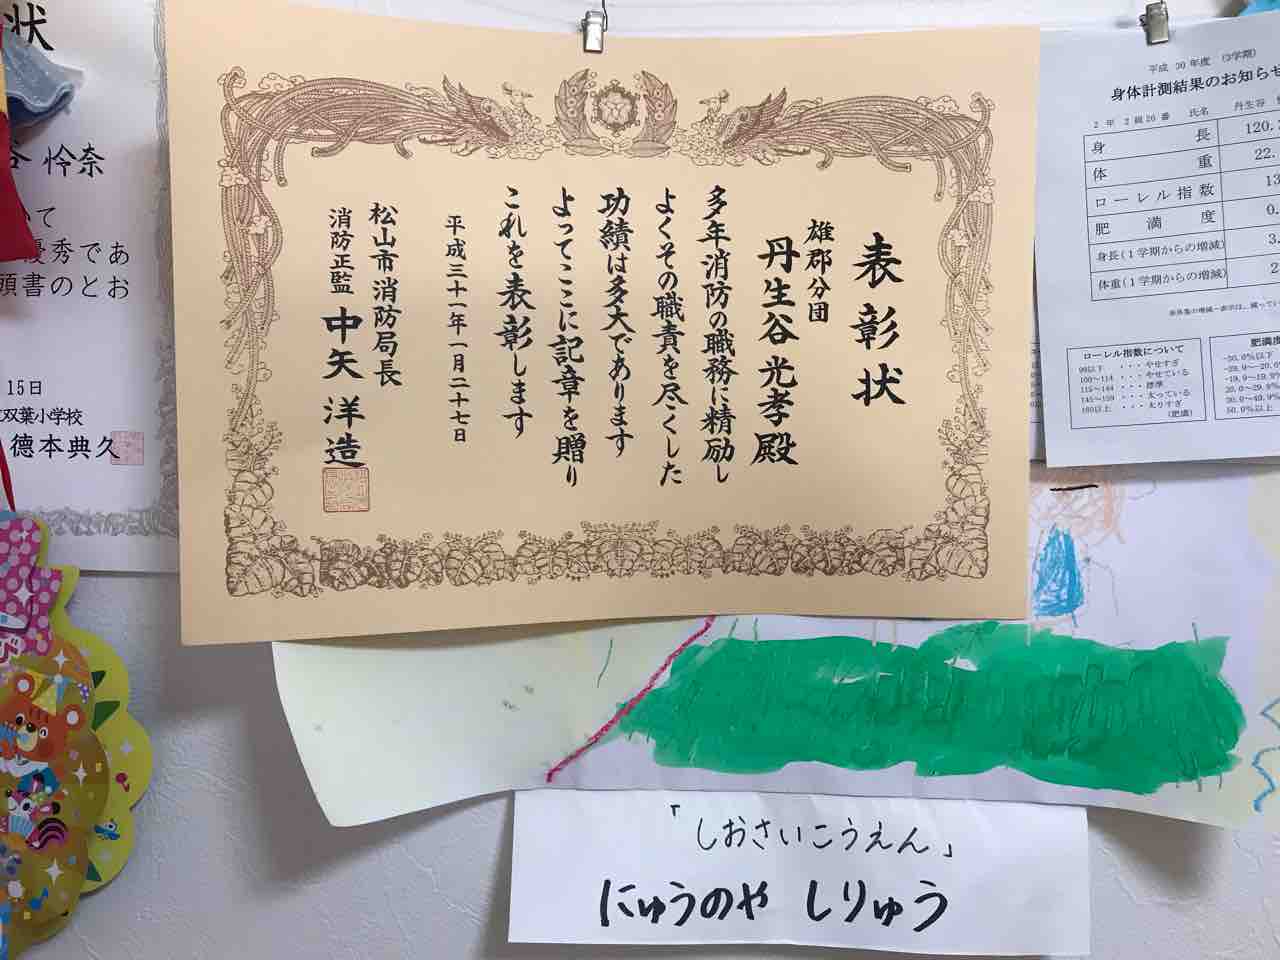 表彰状
雄郡分団
丹生谷光孝殿
多年消防の職務に精励し
よくその職責を尽くした
功績は多大であります
よってここに記章を贈り
これを表彰します
平成三十一年一月二十七日
松山市消防局長
消防正監 中矢洋造
状
怜奈
いて
優秀であ
願書のとお
15日
双葉小学校
德本典久
平成 30 年度 (3学期)
身体計測結果のお知らせ
2 年 2 組26 番 氏名 丹生谷
身長 120.
体重 22.
ローレル指数 13
肥満度 0.
身長(1学期からの増減) 3.
体重(1学期からの増減) 2
ローレル指数について
99以下 ・・・やせすぎ
100~114 ・・・やせている
115~144 ・・・標準
145~159 ・・・太っている
160以上 ・・・太りすぎ
(肥満)
肥満度
-30.0%以下
-29.9~-20.0%
-19.9~19.9%
20.0~29.9%
30.0~49.9%
50.0%以上
「しおさいこうえん」
にゅうのや しりゅう